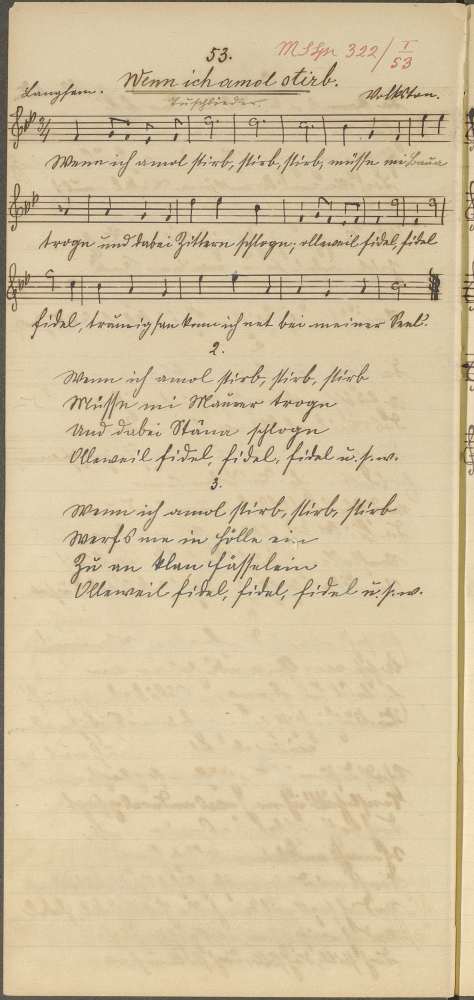 53.
MSHs 322/I
53
Wenn ich amol stirb.
Langsam.
Tuschlieder.
Volkston.
Wenn ich amol stirb, stirb, stirb, müssn mi Baua
trogn und dabei Zittern schlogn; olleweil fidel, fidel
fidel, traurig san kann ich net bei meiner Seel'.
2.
Wenn ich amol stirb, stirb, stirb
Müssn mi Maurer trogn
Und dabei Stäna schlogn
Olleweil fidel, fidel, fidel u. s. w.
3.
Wenn ich amol stirb, stirb, stirb
Werfs me in Hölle ein
Zu an klan Fässelein
Olleweil fidel, fidel, fidel u. s. w.